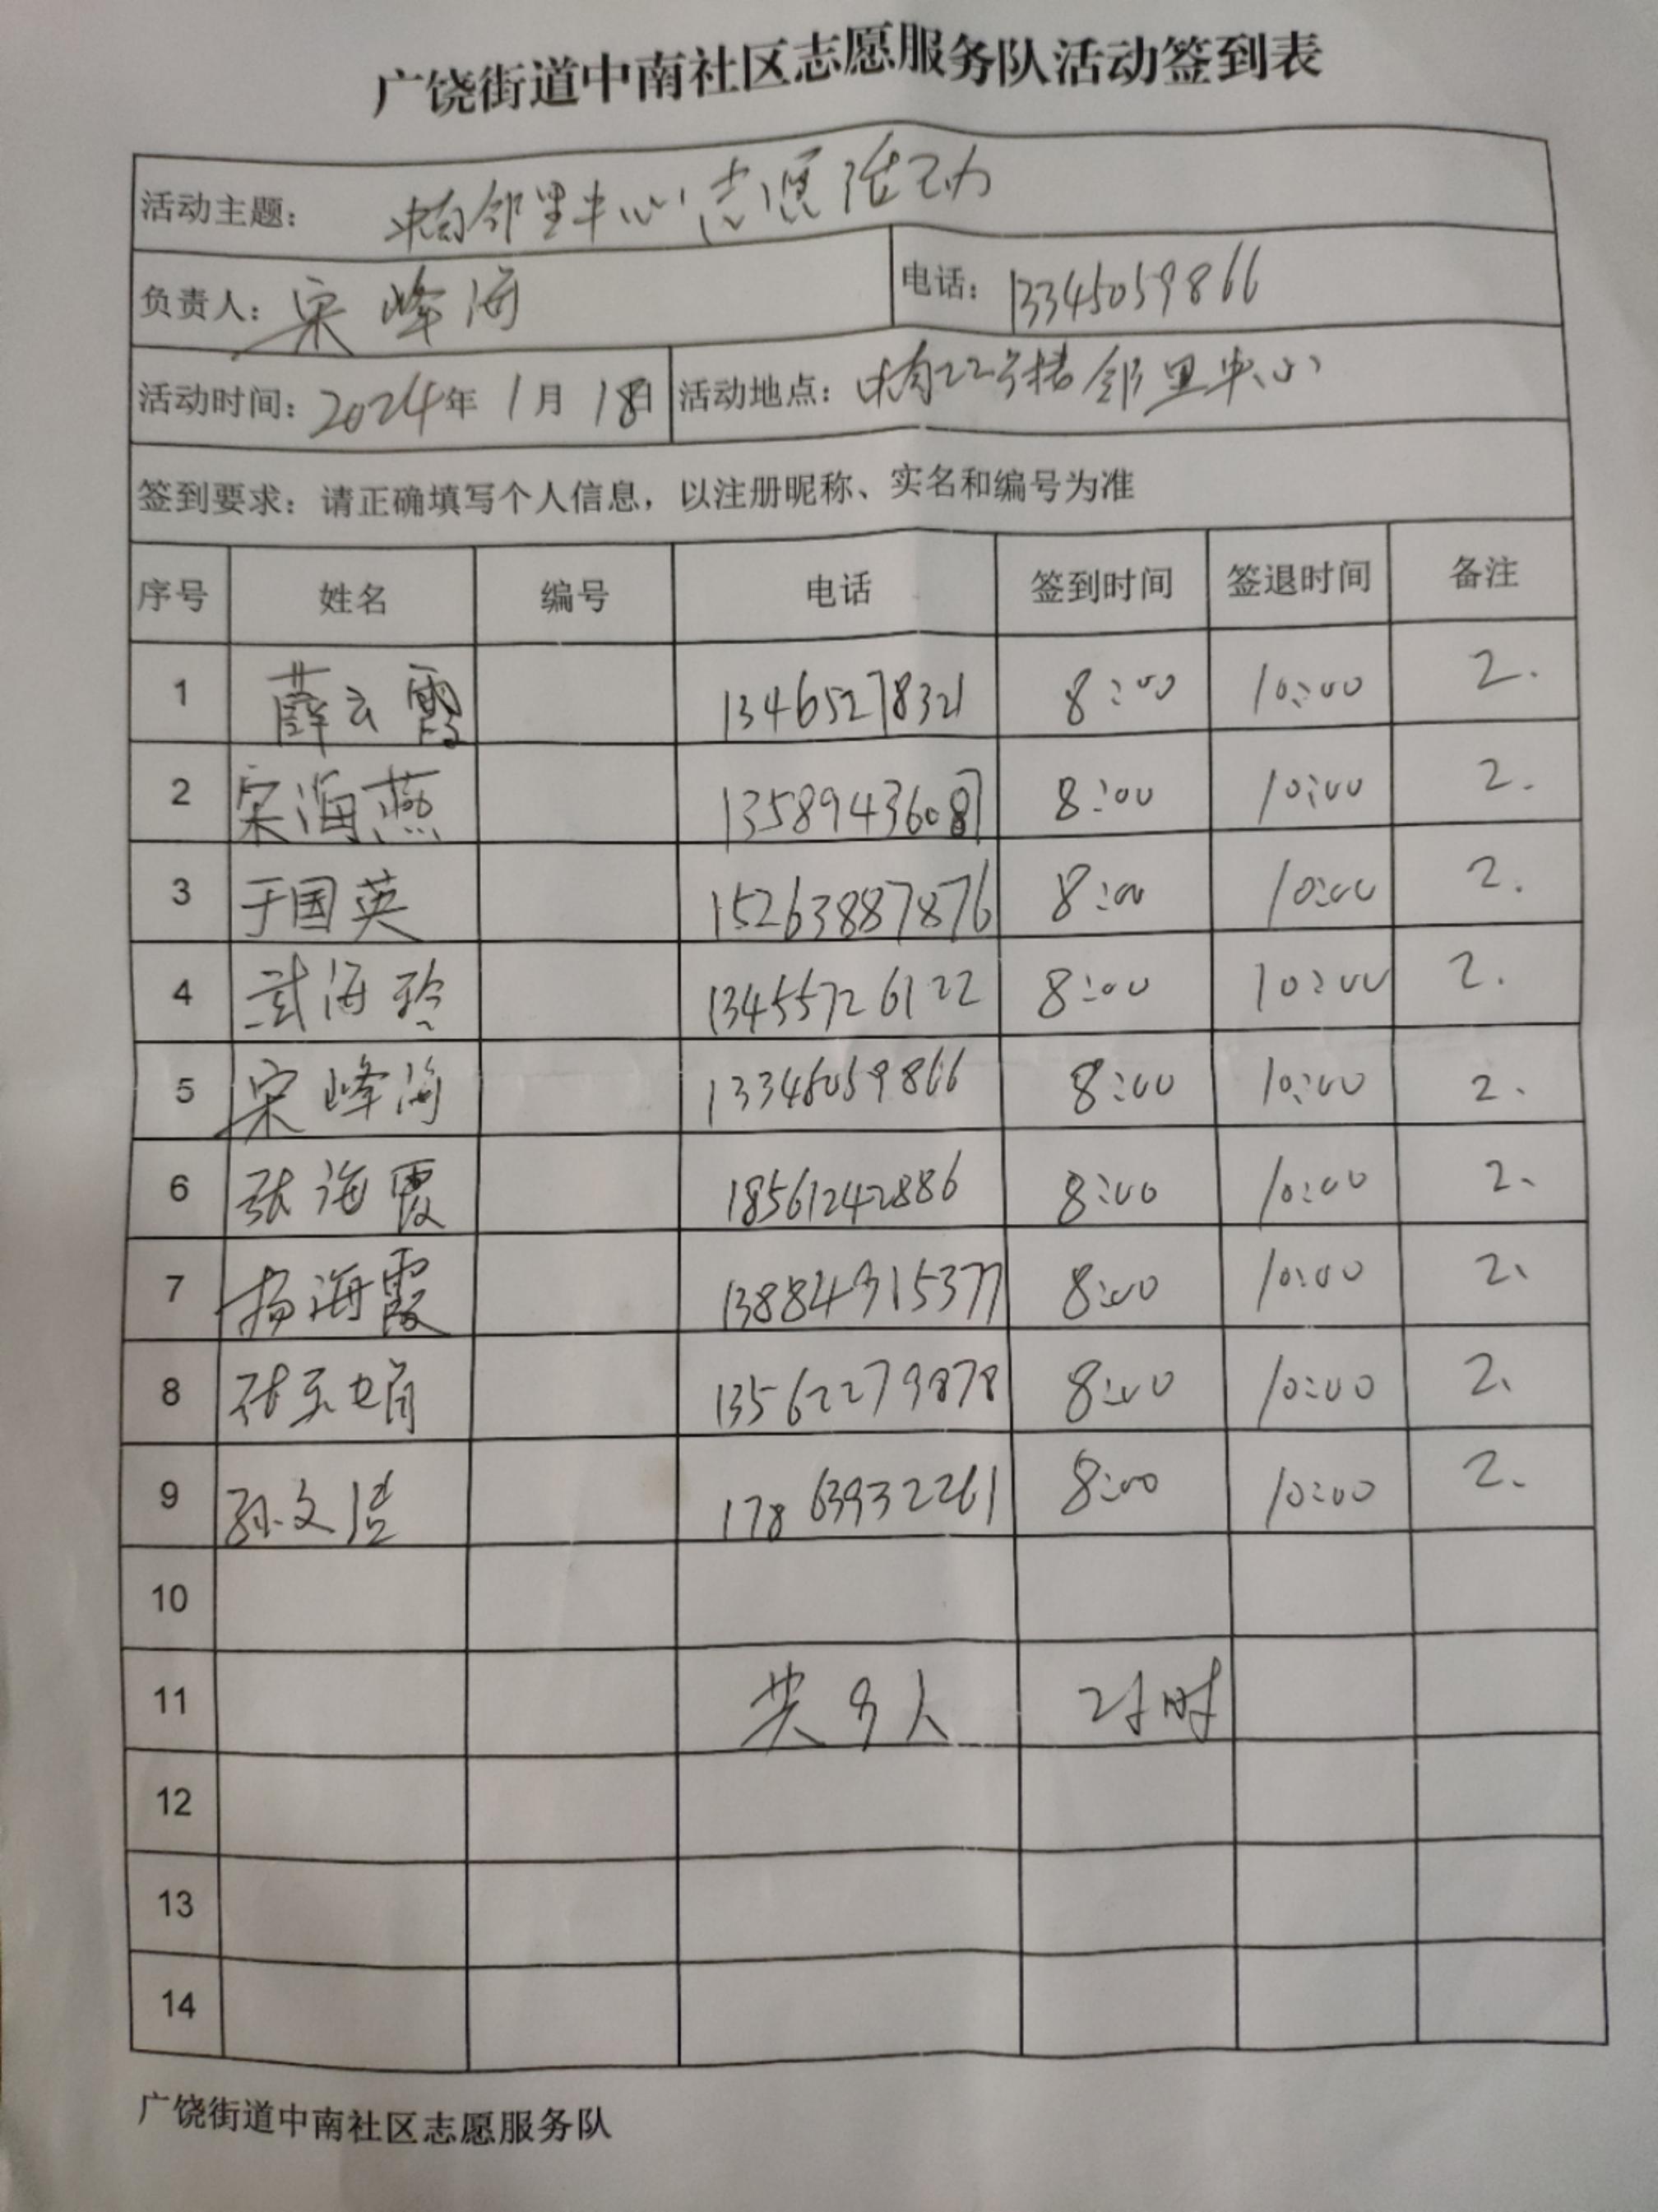 广饶街道中南社区志愿服务队活动签到表
活动主题： 中南邻里中心志愿活动
负责人：宋峰海 电话：13345059866
活动时间：2024年1月18日 活动地点：中南22号楼邻里中心
签到要求：请正确填写个人信息，以注册昵称、实名和编号为准
序号 姓名 编号 电话 签到时间 签退时间 备注
1 薛云霞 13465278321 8:00 10:00 2.
2 宋海燕 13589943608 8:00 10:00 2.
3 于国英 15263887876 8:00 10:00 2.
4 武海玲 13455726122 8:00 10:00 2.
5 宋峰海 13345059866 8:00 10:00 2.
6 张海霞 18561242886 8:00 10:00 2.
7 杨海霞 13884915377 8:00 10:00 2.
8 张玉娟 13562279878 8:00 10:00 2.
9 孙文洁 17863932261 8:00 10:00 2.
10
11 共9人 2小时
12
13
14
广饶街道中南社区志愿服务队